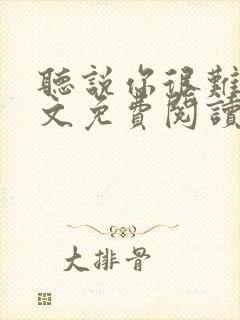 聽說你很難
文免費閱讀
大排骨